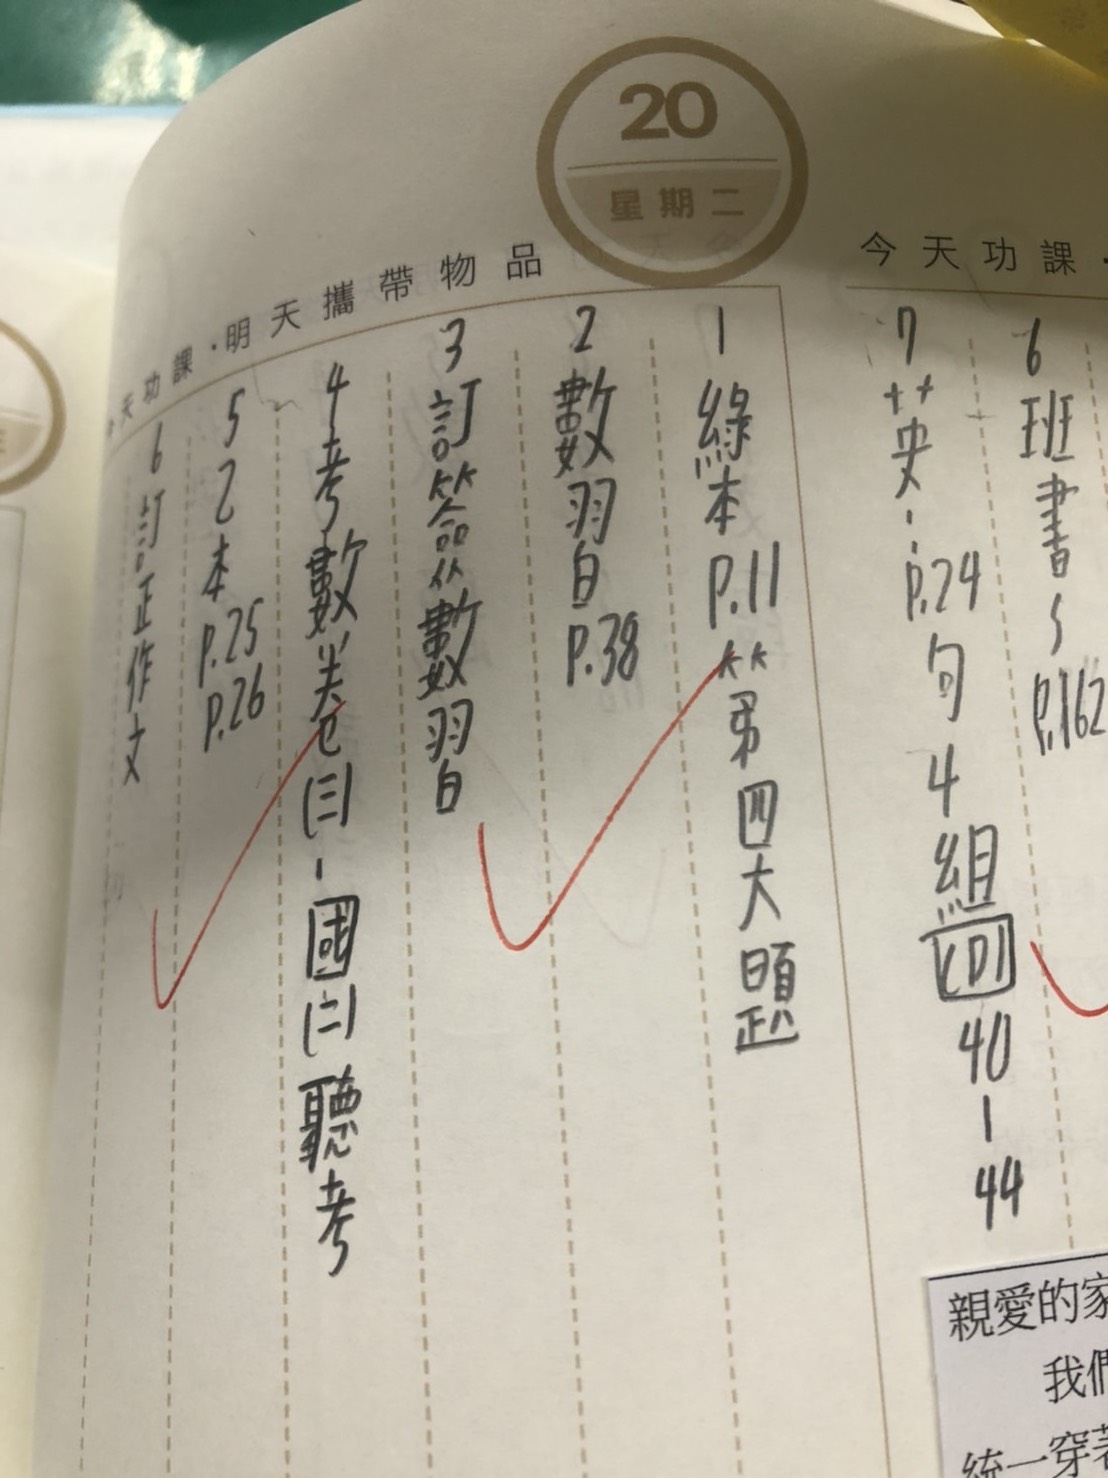 20
星期二
今天功課·
6 班書 S P.162
7 英: P.24 句4組 CD1 40-44
今天功課·明天攜帶物品
1 綠本 P.11 第四大題
2 數習白 P.38
3 訂簽數習白
4 考數美卷(三)-國(二)聽考
5 乙本 P.25 P.26
6 訂正作文
親愛的家
我們
統一穿著